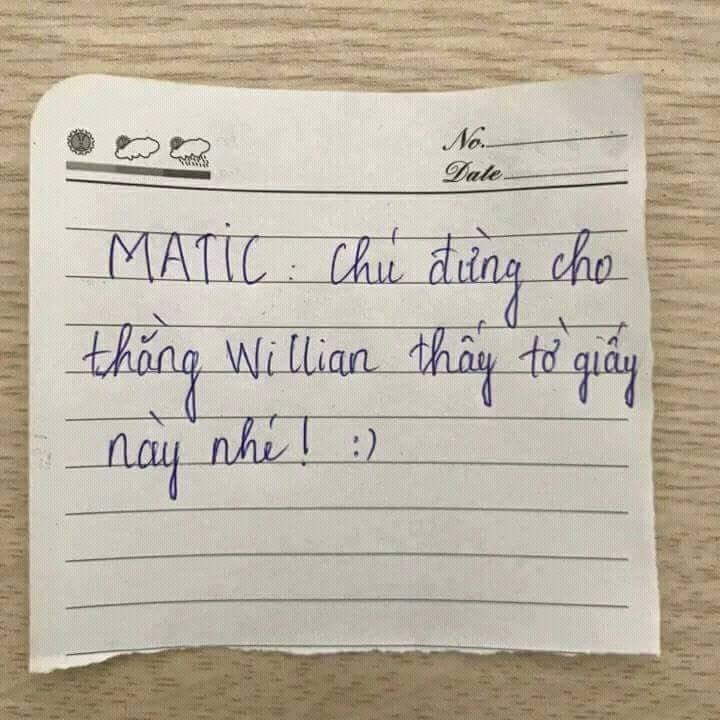 No.
Date
MATIC : Chú đừng cho
thằng Willian thấy tờ giấy
này nhé! :)